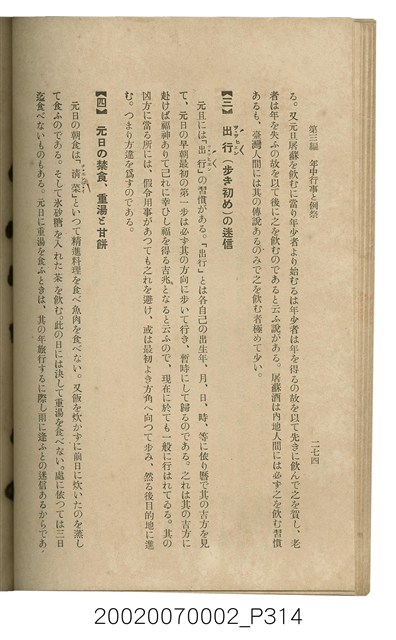 第三編　年中行事と例祭
二七四
る。又元旦屠蘇を飲むに當り年少者より始むるは年少者は年を得るの故を以て先きに飲んで之を賀し、老
者は年を失ふの故を以て後に之を飲むのであると云ふ說がある。屠蘇酒は內地人間には必ず之を飲む習慣
あるも、臺灣人間には其の傳說あるのみで之を飲む者極めて少い。
【三】　出行（步き初め）の迷信
元旦には「出行」の習慣がある。「出行」とは各自己の出生年、月、日、時、等に依り曆で其の吉方を見
て、元日の早朝最初の第一步は必ず其の方向に步いて行き、暫時にして歸るのである。之れは其の吉方に
赴けば福神ありて己れに幸ひし福を得る吉兆となると云ふので、現在に於ても一般に行はれてゐる。其の
凶方に當る所には、假令用事があつても之れを避け、或は最初よき方角へ向つて步み、然る後目的地に進
む。つまり方違を爲すのである。
【四】　元日の禁食、重湯と甘餅
元日の朝食は、「清菜」といつて精進料理を食べ魚肉を食べない。又飯を炊かずに前日に炊いたのを蒸し
て食ふのである。そして氷砂糖を入れた茶を飲む。此の日には決して重湯を食べない。處に依つては三日
迄食べないものもある。元日に重湯を食ふときは、其の年旅行するに際し雨に逢ふとの迷信あるからであ、
20020070002_P314